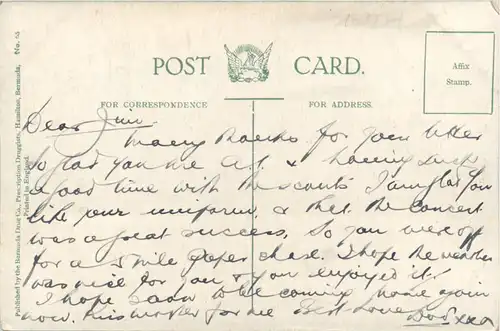 POST CARD.
Affix
Stamp.
FOR CORRESPONDENCE
FOR ADDRESS.
Published by the Bermuda Drug Co., Prescription Druggists, Hamilton, Bermuda. No. 63
Printed in England.
Dear Jim.
Many thanks for your letter
So glad you are A.1. & having such
a good time with the scouts I am glad you
like your uniform, & that the concert
was a great success, So you were off
for a 5 mile paper chase. I hope the weather
was nice for you & you enjoyed it.
I hope soon to be coming home again
now. Kiss mother for me Best Love Dad xxx